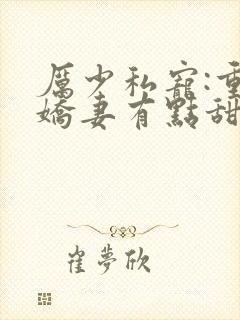 厲少私寵:重
嬌妻有點甜
崔夢欣